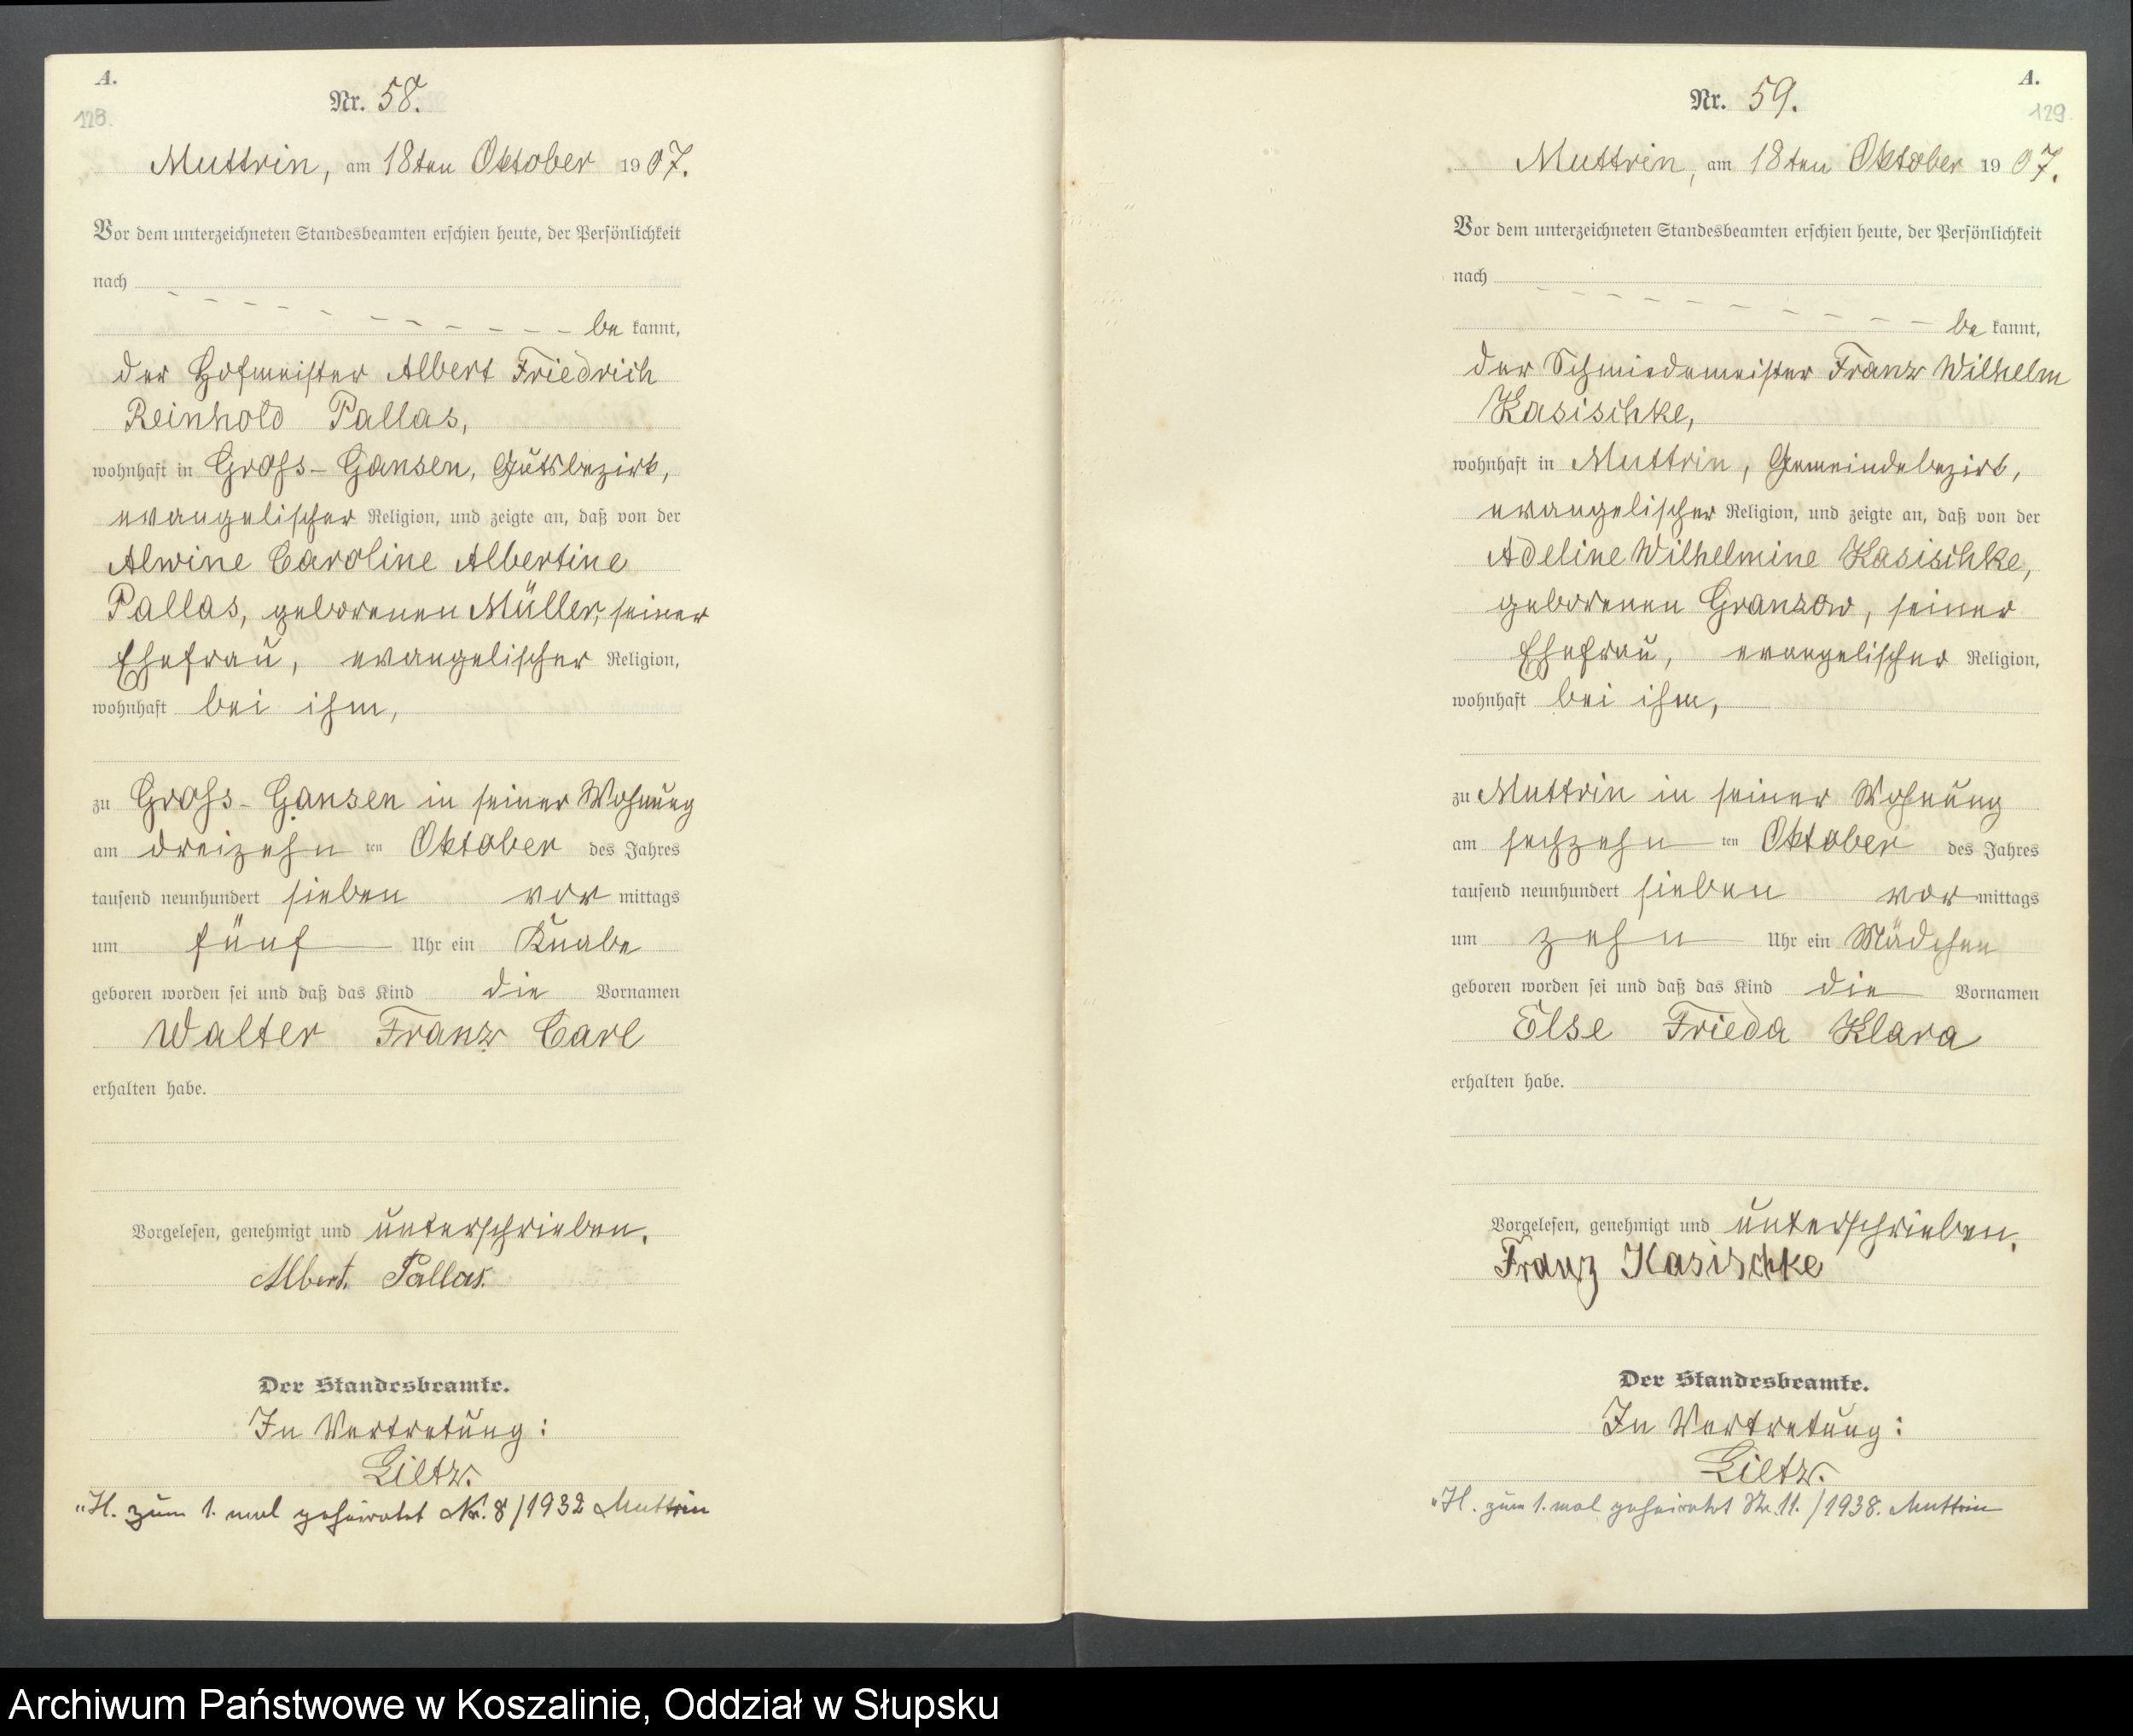 A.
128.
Nr. 58.
Muttrin, am 18ten Oktober 1907.
Vor dem unterzeichneten Standesbeamten erschien heute, der Persönlichkeit
nach
be kannt,
der Hofmeister Albert Friedrich
Reinhold Pallas,
wohnhaft in Gross-Gansen, Gutsbezirk,
evangelischer Religion, und zeigte an, daß von der
Alwine Caroline Albertine
Pallas, geborenen Müller, seiner
Ehefrau, evangelischer Religion,
wohnhaft bei ihm,
zu Gross-Gansen in seiner Wohnung
am dreizehn ten Oktober des Jahres
tausend neunhundert sieben vor mittags
um fünf Uhr ein Knabe
geboren worden sei und daß das Kind die Vornamen
Walter Franz Carl
erhalten habe.
Vorgelesen, genehmigt und unterschrieben.
Albert Pallas.
Der Standesbeamte.
In Vertretung:
Lietz.
"H. zum 1. mal geheiratet Nr. 8/1932 Muttrin
A.
129.
Nr. 59.
Muttrin, am 18ten Oktober 1907.
Vor dem unterzeichneten Standesbeamten erschien heute, der Persönlichkeit
nach
be kannt,
der Schmiedemeister Franz Wilhelm
Kasischke,
wohnhaft in Muttrin, Gemeindebezirk,
evangelischer Religion, und zeigte an, daß von der
Adeline Wilhelmine Kasischke,
geborenen Granzow, seiner
Ehefrau, evangelischer Religion,
wohnhaft bei ihm,
zu Muttrin in seiner Wohnung
am sechzehn ten Oktober des Jahres
tausend neunhundert sieben vor mittags
um zehn Uhr ein Mädchen
geboren worden sei und daß das Kind die Vornamen
Else Frieda Klara
erhalten habe.
Vorgelesen, genehmigt und unterschrieben.
Franz Kasischke
Der Standesbeamte.
In Vertretung:
Lietz.
"H. zum 1. mal geheiratet Nr. 11./1938. Muttrin
Archiwum Państwowe w Koszalinie, Oddział w Słupsku